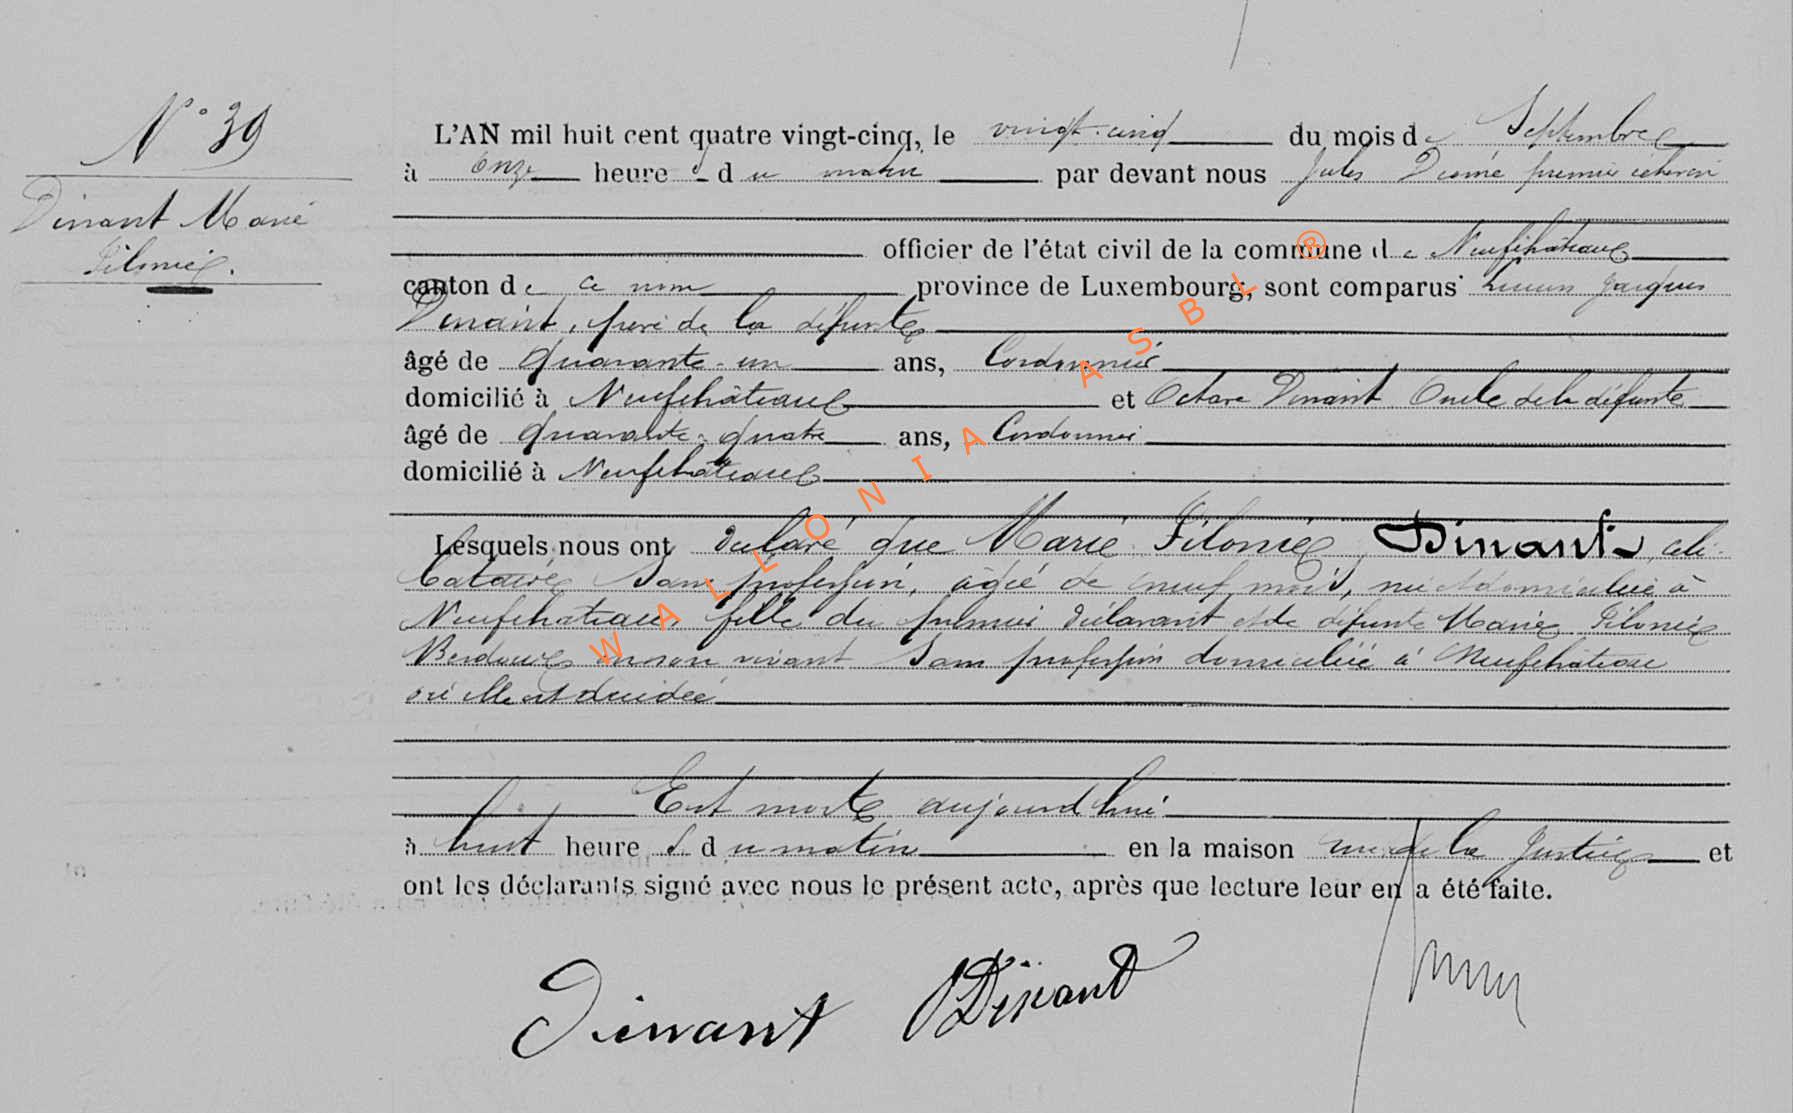 N° 39
Dinant Marie
Filonie.
L'AN mil huit cent quatre vingt-cinq, le vingt-cinq du mois de Septembre
à onze heures du matin par devant nous Jules premier échevin
officier de l'état civil de la commune de Neufchâteau
canton de ce nom province de Luxembourg, sont comparus Lucien Jacques
Dinant, père de la défunte
âgé de quarante-un ans, Cordonnier
domicilié à Neufchâteau et Octave Dinant Oncle de la défunte
âgé de quarante-quatre ans, Cordonnier
domicilié à Neufchâteau
Lesquels nous ont déclaré que Marie Filonie Dinant, céli-
bataire, sans profession, âgée de neuf mois, née et domiciliée à
Neufchâteau, fille du premier déclarant et de défunte Marie Filonie
en son vivant sans profession domiciliée à Neufchâteau
où elle est décédée
Est morte aujourd'hui
à huit heures du matin en la maison rue de la Justice et
ont les déclarants signé avec nous le présent acte, après que lecture leur en a été faite.
Dinant ODinant
WALLONIA ASBL ®